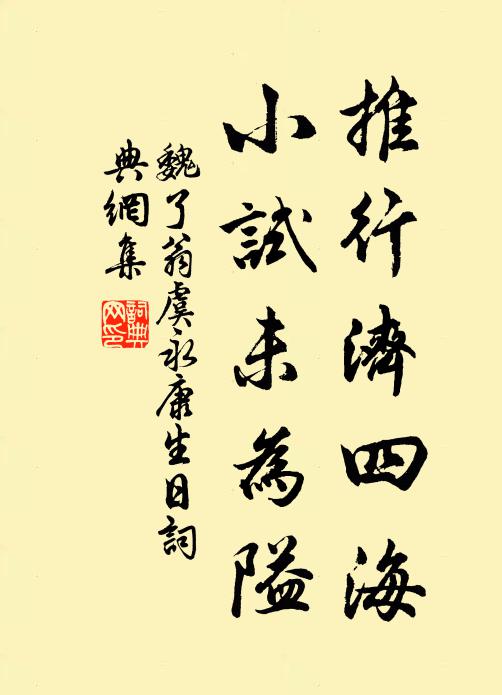 推行濟四海
小試未為隘
魏了翁虞永康生日詞
典網集
詞典
网印